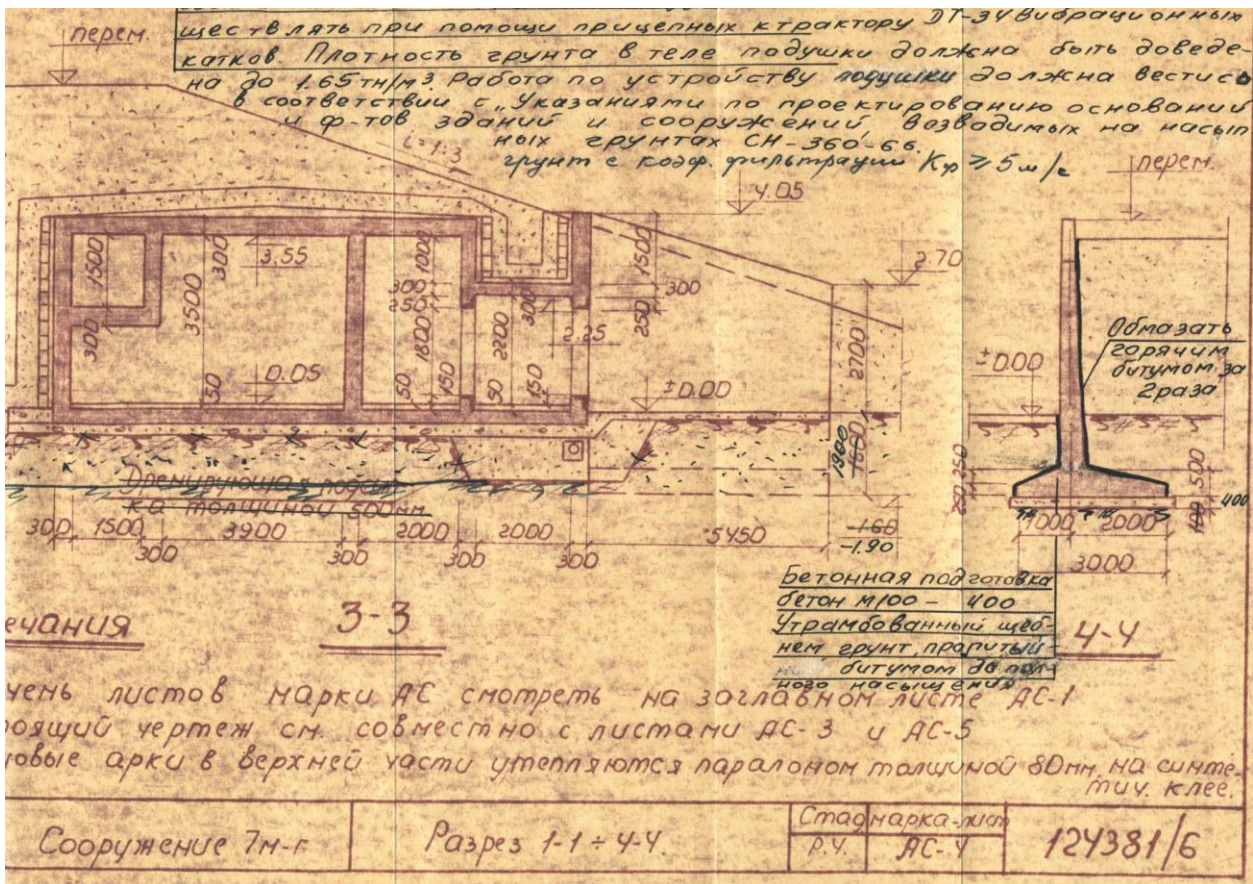 ществлять при помощи прицепных к трактору ДТ-34 вибрационных
катков. Плотность грунта в теле подушки должна быть доведе-
на до 1.65тн/м³. Работа по устройству подушки должна вестись
в соответствии с „Указаниями по проектированию оснований
и ф-тов зданий и сооружений, возводимых на насып
ных грунтах СН-360-66.
грунт с коэф. фильтрации Кф ≥ 5 м/с
перем.
перем.
i=1:3
4.05
2.70
1500
300
3500
300
3.55
1000
300
250
1800
2200
300
1500
300
250
2.25
50
0.05
50
150
50
150
±0.00
2700
1900
1600
Обмазать
горячим
битумом за
2 раза
±0.00
250
500
400
Дренирующая
ка толщиной 500мм
300
1500
3900
2000
2000
5450
300
300
300
300
-1.60
-1.90
1000
2000
3000
Бетонная подготовка
бетон М100 - 400
Утрамбованный щеб-
нем грунт, пропитый
битумом до пол
ного насыщения
3-3
4-4
ечания
чень листов марки АС смотреть на заглавном листе АС-1
оящий чертеж см. совместно с листами АС-3 и АС-5
овые арки в верхней части утепляются паралоном толщиной 80мм на синте-
тич. клее.
Сооружение 7н-г
Разрез 1-1 ÷ 4-4.
Стад
марка-лист
Р.Ч.
АС-4
124381/6